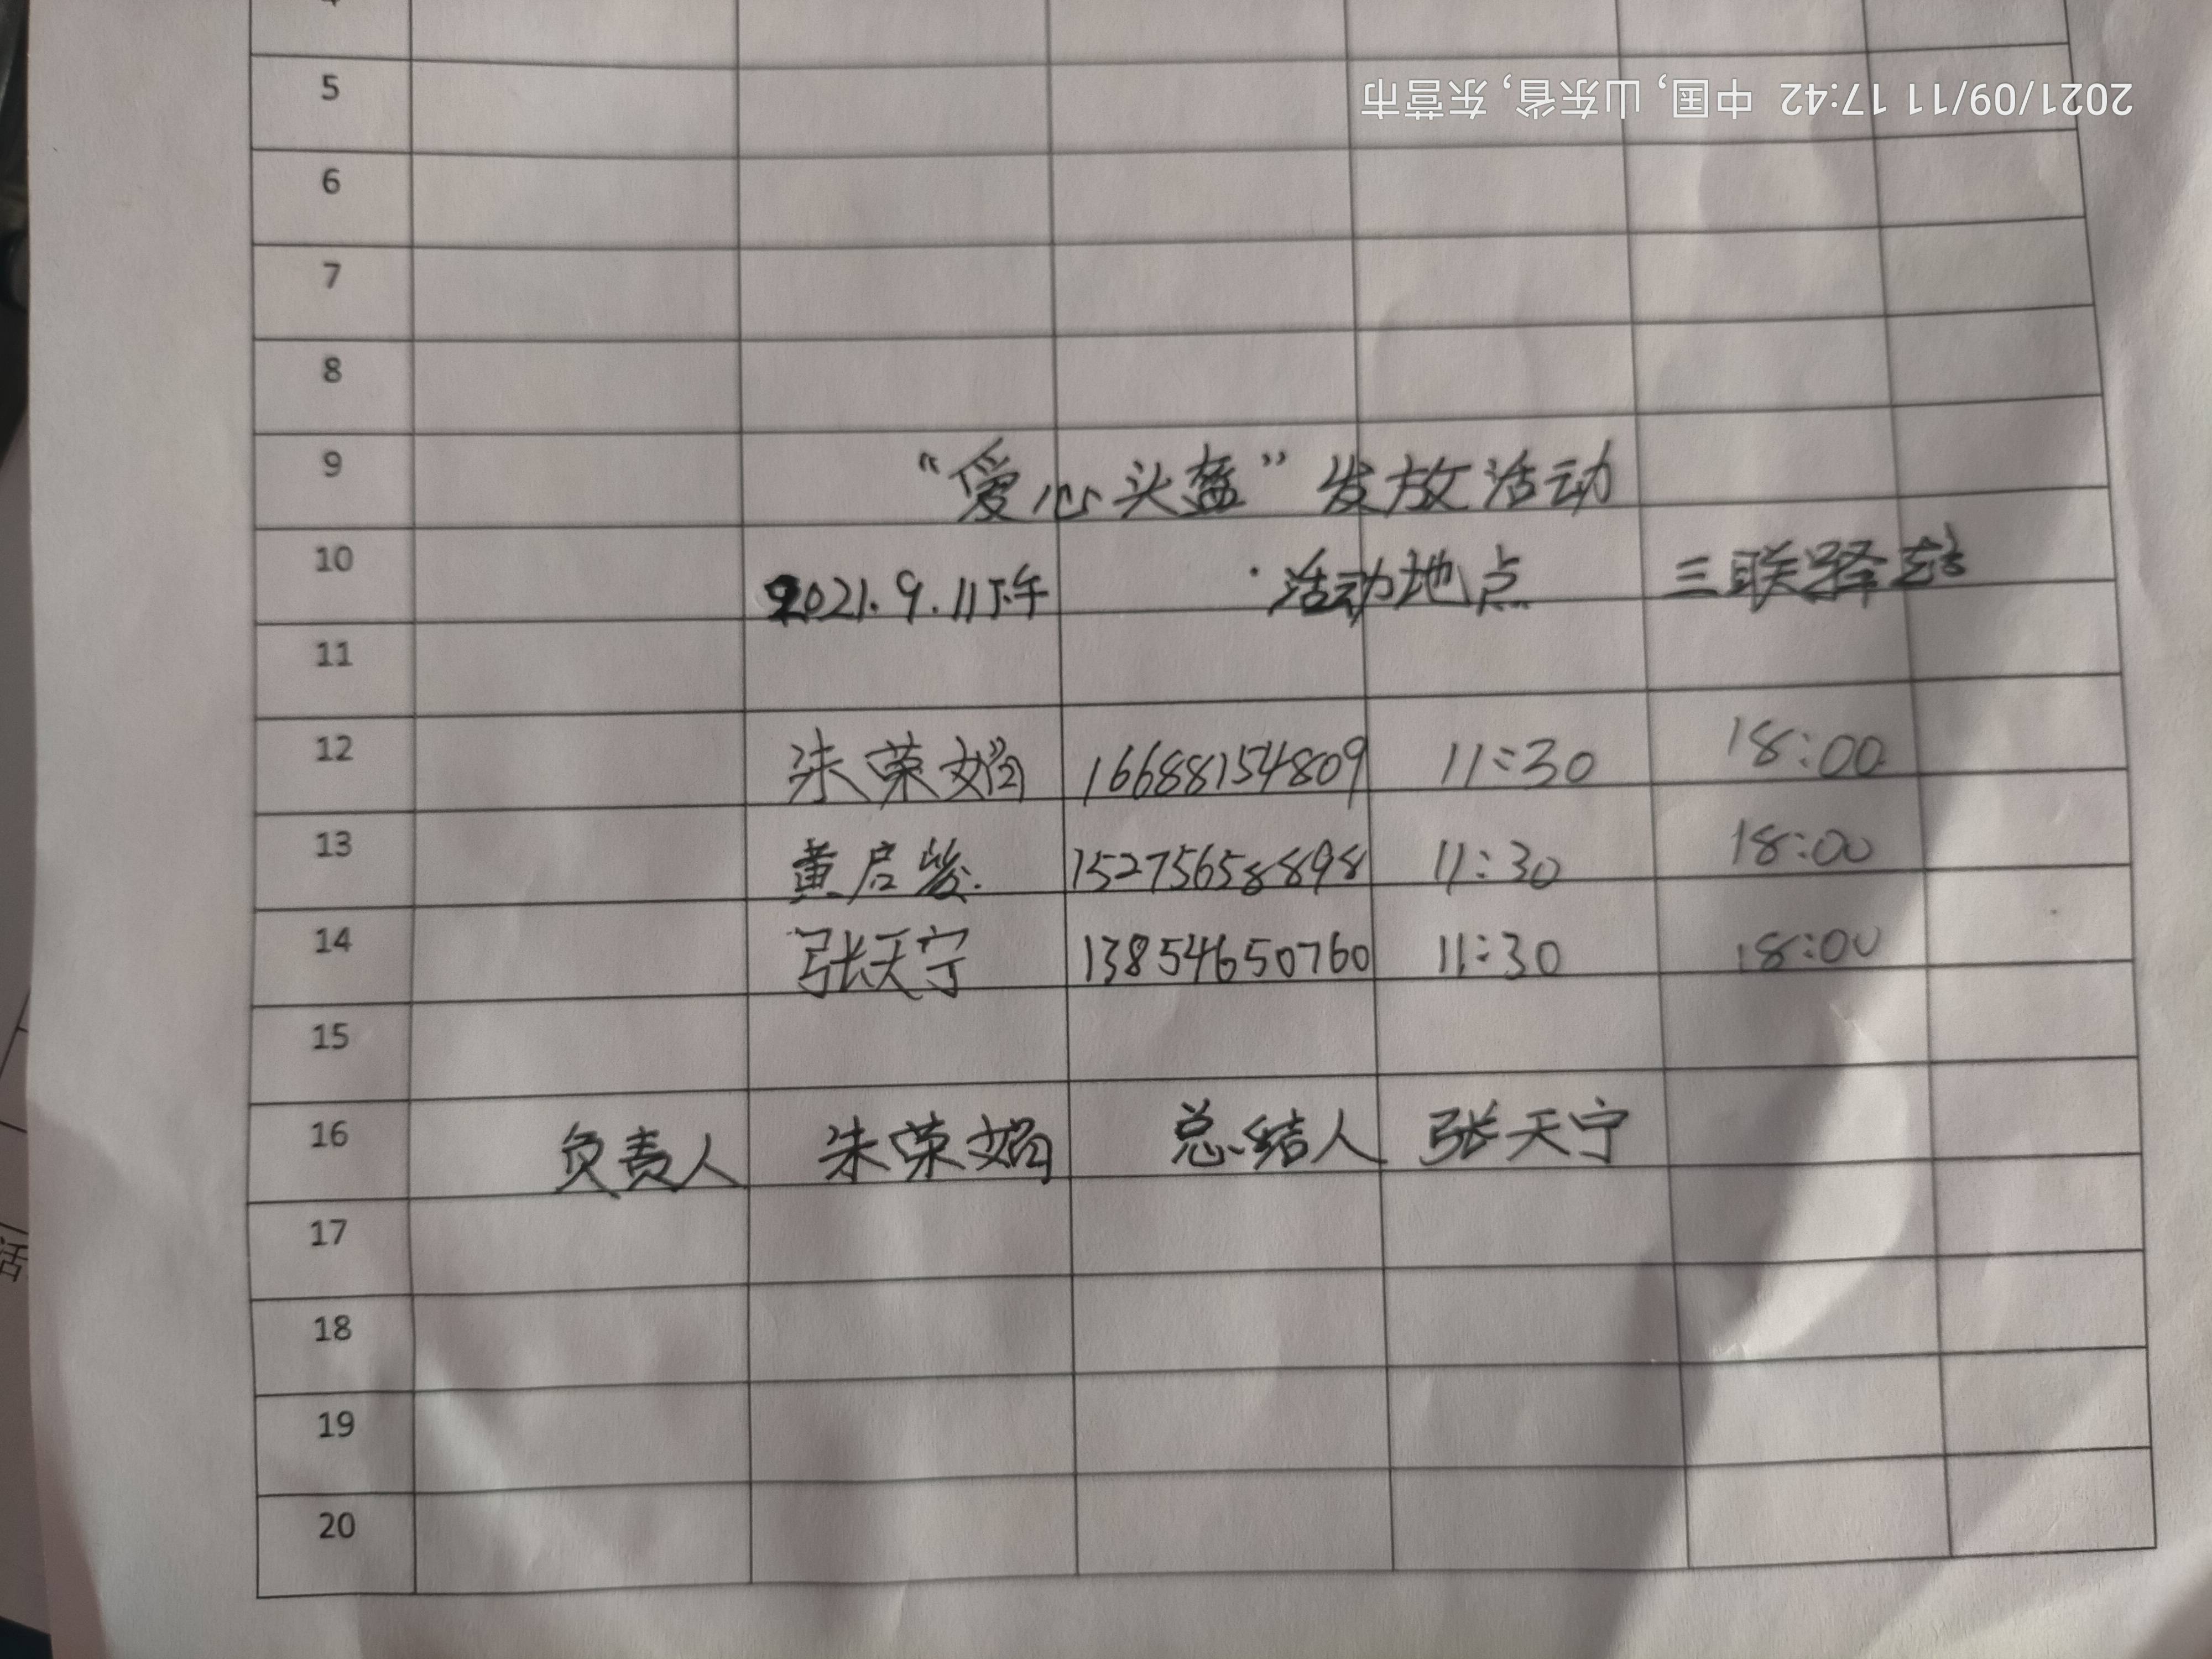 2021/09/11 17:42 中国, 山东省, 东营市
5
6
7
8
9 “爱心头盔”发放活动
10 2021.9.11下午 活动地点 三联驿站
11
12 朱荣娟 16688154809 11:30 18:00
13 黄启 15275658898 11:30 18:00
14 张天宁 13854650760 11:30 18:00
15
16 负责人 朱荣娟 总结人 张天宁
17
18
19
20